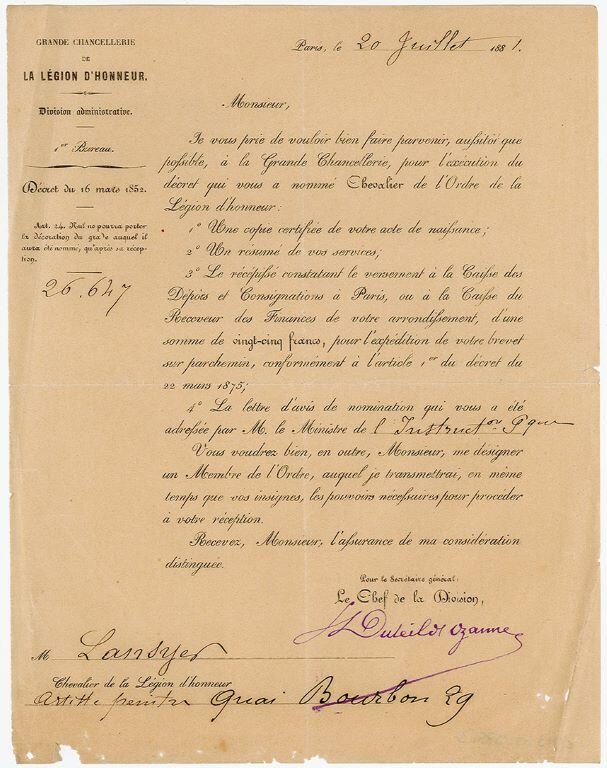 GRANDE CHANCELLERIE
DE
LA LÉGION D'HONNEUR.
Division administrative.
1er Bureau.
Décret du 16 mars 1852.
Art. 24. Nul ne pourra porter
la décoration du grade auquel il
aura été nommé, qu'après sa récep-
tion.
26.647
Paris, le 20 Juillet 1881.
Monsieur,
Je vous prie de vouloir bien faire parvenir, aussitôt que
possible, à la Grande Chancellerie, pour l'exécution du
décret qui vous a nommé Chevalier de l'Ordre de la
Légion d'honneur:
1° Une copie certifiée de votre acte de naissance;
2° Un résumé de vos services;
3° Le récépissé constatant le versement à la Caisse des
Dépôts et Consignations à Paris, ou à la Caisse du
Receveur des Finances de votre arrondissement, d'une
somme de vingt-cinq francs, pour l'expédition de votre brevet
sur parchemin, conformément à l'article 1er du décret du
22 mars 1875;
4° La lettre d'avis de nomination qui vous a été
adressée par M. le Ministre de l'Instructon Pque
Vous voudrez bien, en outre, Monsieur, me désigner
un Membre de l'Ordre, auquel je transmettrai, en même
temps que vos insignes, les pouvoirs nécessaires pour procéder
à votre réception.
Recevez, Monsieur, l'assurance de ma considération
distinguée.
Pour le Secrétaire général:
Le Chef de la Division,
Duteil d'Ozanne
M Lansyer
Chevalier de la Légion d'honneur
Artiste peintre Quai Bourbon 29